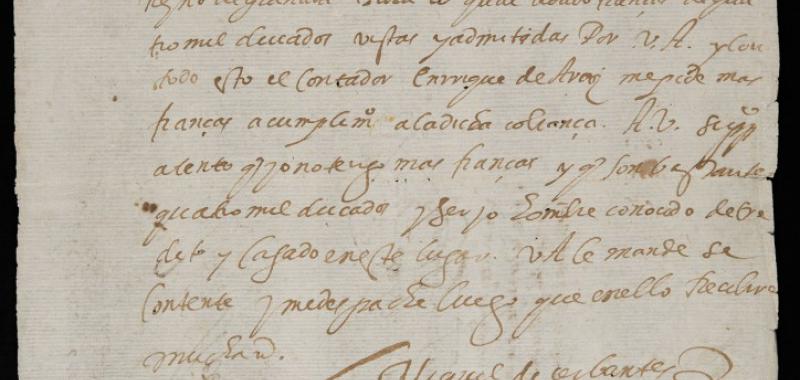 Reyno de granada para lo qual
tro mil ducados vistas y admitidas Por V. A. y con
todo esto el Contador Enrrique de Araiz me pide mas
fianças a cumplimº a la dicha cobrança. A. V. Suppco
atento q̃ yo no tengo mas fianças y q̃ son bastantes
quatro mil ducados y Ser yo hombre conocido de cre
dito y Casado en este lugar. V A le mande se
Contente y me despache luego que en ello Recibire
mucha
Miguel de cerbantes